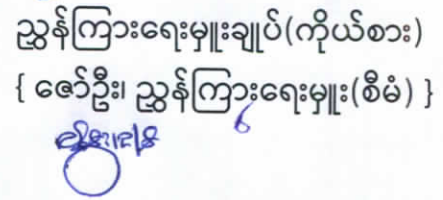 ညွှန်ကြားရေးမှူးချုပ်(ကိုယ်စား)
{ ဇော်ဦး၊ ညွှန်ကြားရေးမှူး(စီမံ) }